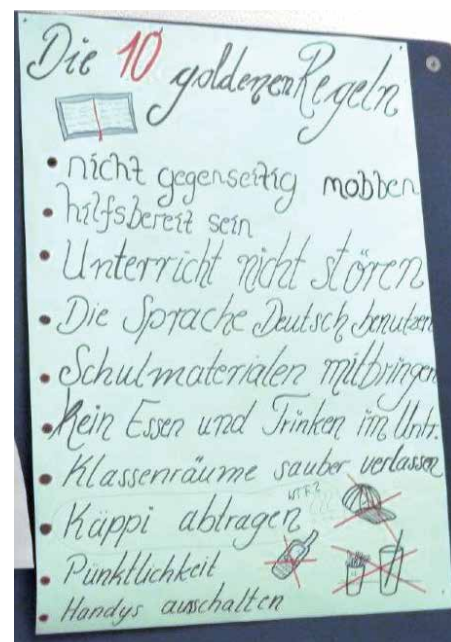 Die 10 goldenen Regeln
• nicht gegenseitig mobben
• hilfsbereit sein
• Unterricht nicht stören
• Die Sprache Deutsch benutzen
• Schulmaterialen mitbringen
• Kein Essen und Trinken im Untr.
• Klassenräume sauber verlassen
WTF?
• Käppi abtragen
• Pünktlichkeit
• Handys ausschalten